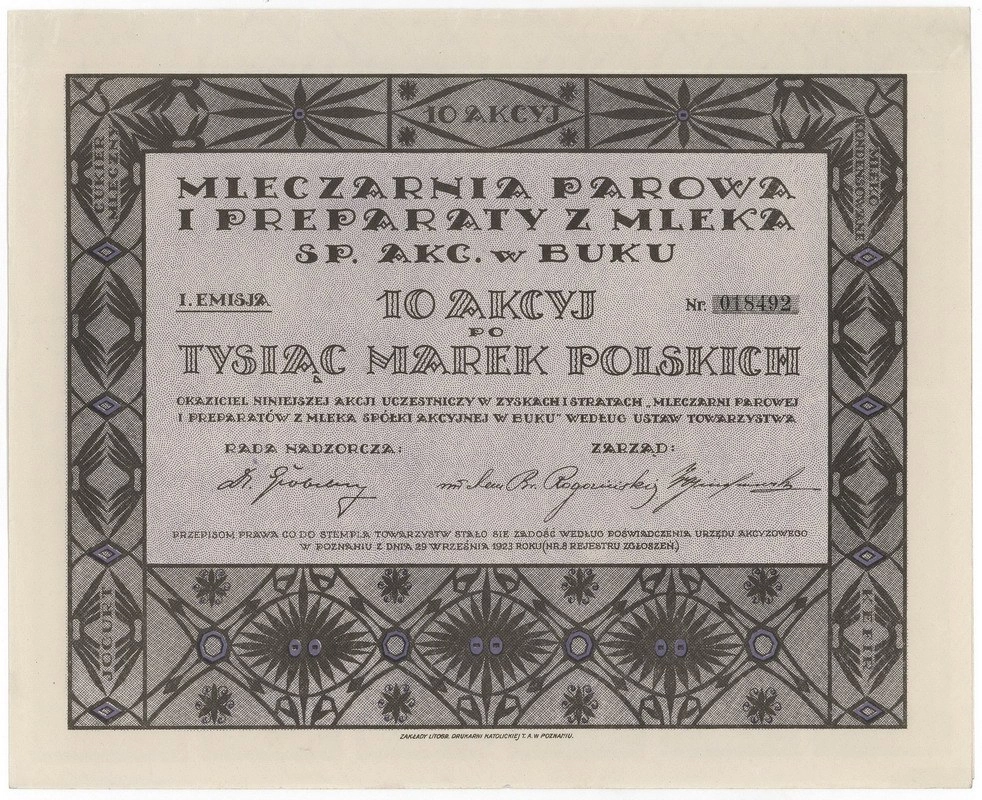 10 AKCYJ
CUKIER
MLECZNY
MLEKO
KONDENSOWANE
MLECZARNIA PAROWA
I PREPARATY Z MLEKA
SP. AKC. w BUKU
I. EMISJA
10 AKCYJ
Nr. 018492
PO
TYSIĄC MAREK POLSKICH
OKAZICIEL NINIEJSZEJ AKCJI UCZESTNICZY W ZYSKACH I STRATACH „MLECZARNI PAROWEJ
I PREPARATÓW Z MLEKA SPÓŁKI AKCYJNEJ W BUKU" WEDŁUG USTAW TOWARZYSTWA
RADA NADZORCZA:
ZARZĄD:
PRZEPISOM PRAWA CO DO STEMPLA TOWARZYSTW STAŁO SIE ZADOŚĆ WEDŁUG POŚWIADCZENIA URZĘDU AKCYZOWEGO
W POZNANIU Z DNIA 29 WRZEŚNIA 1923 ROKU (NR. 8 REJESTRU ZGŁOSZEŃ.)
JOGURT
KEFIR
ZAKŁADY LITOGR. DRUKARNI KATOLICKIEJ T. A. W POZNANIU.